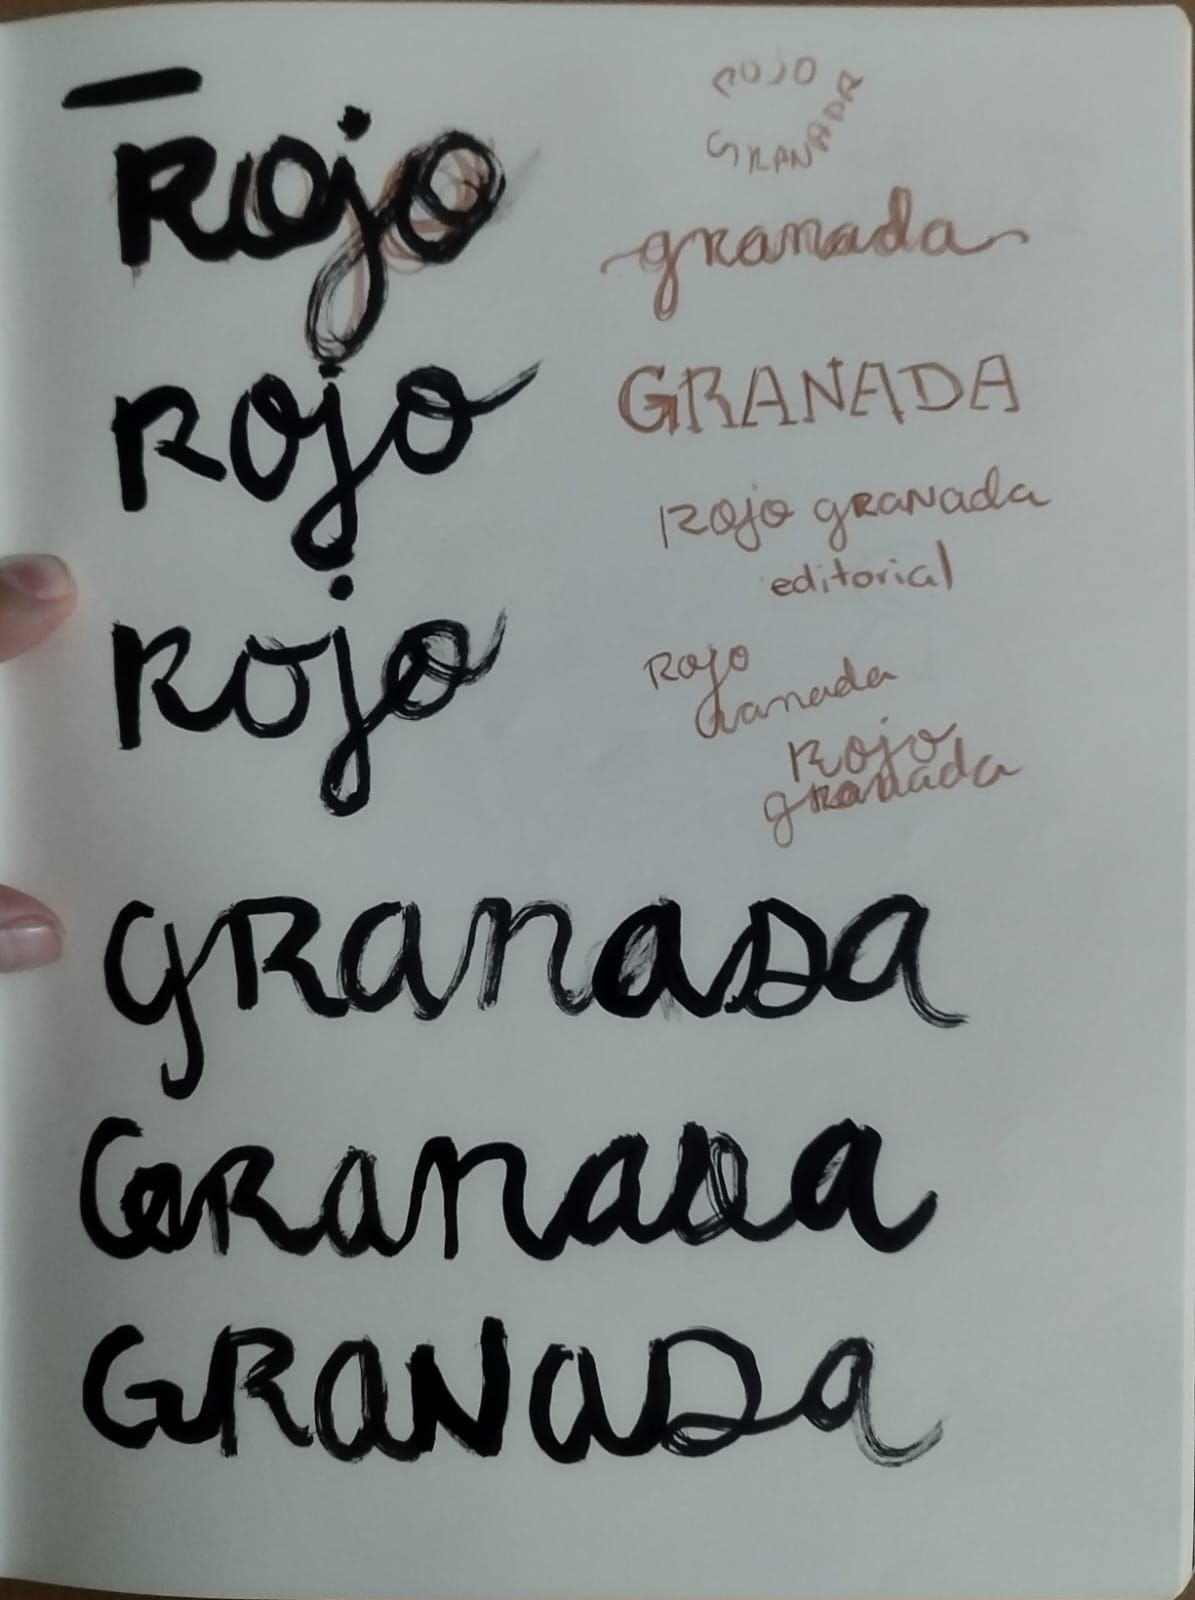 Rojo
Rojo
Rojo
granada
Granada
GRANADA
ROJO
GRANADA
granada
GRANADA
Rojo granada
editorial
Rojo
Granada
Rojo
granada